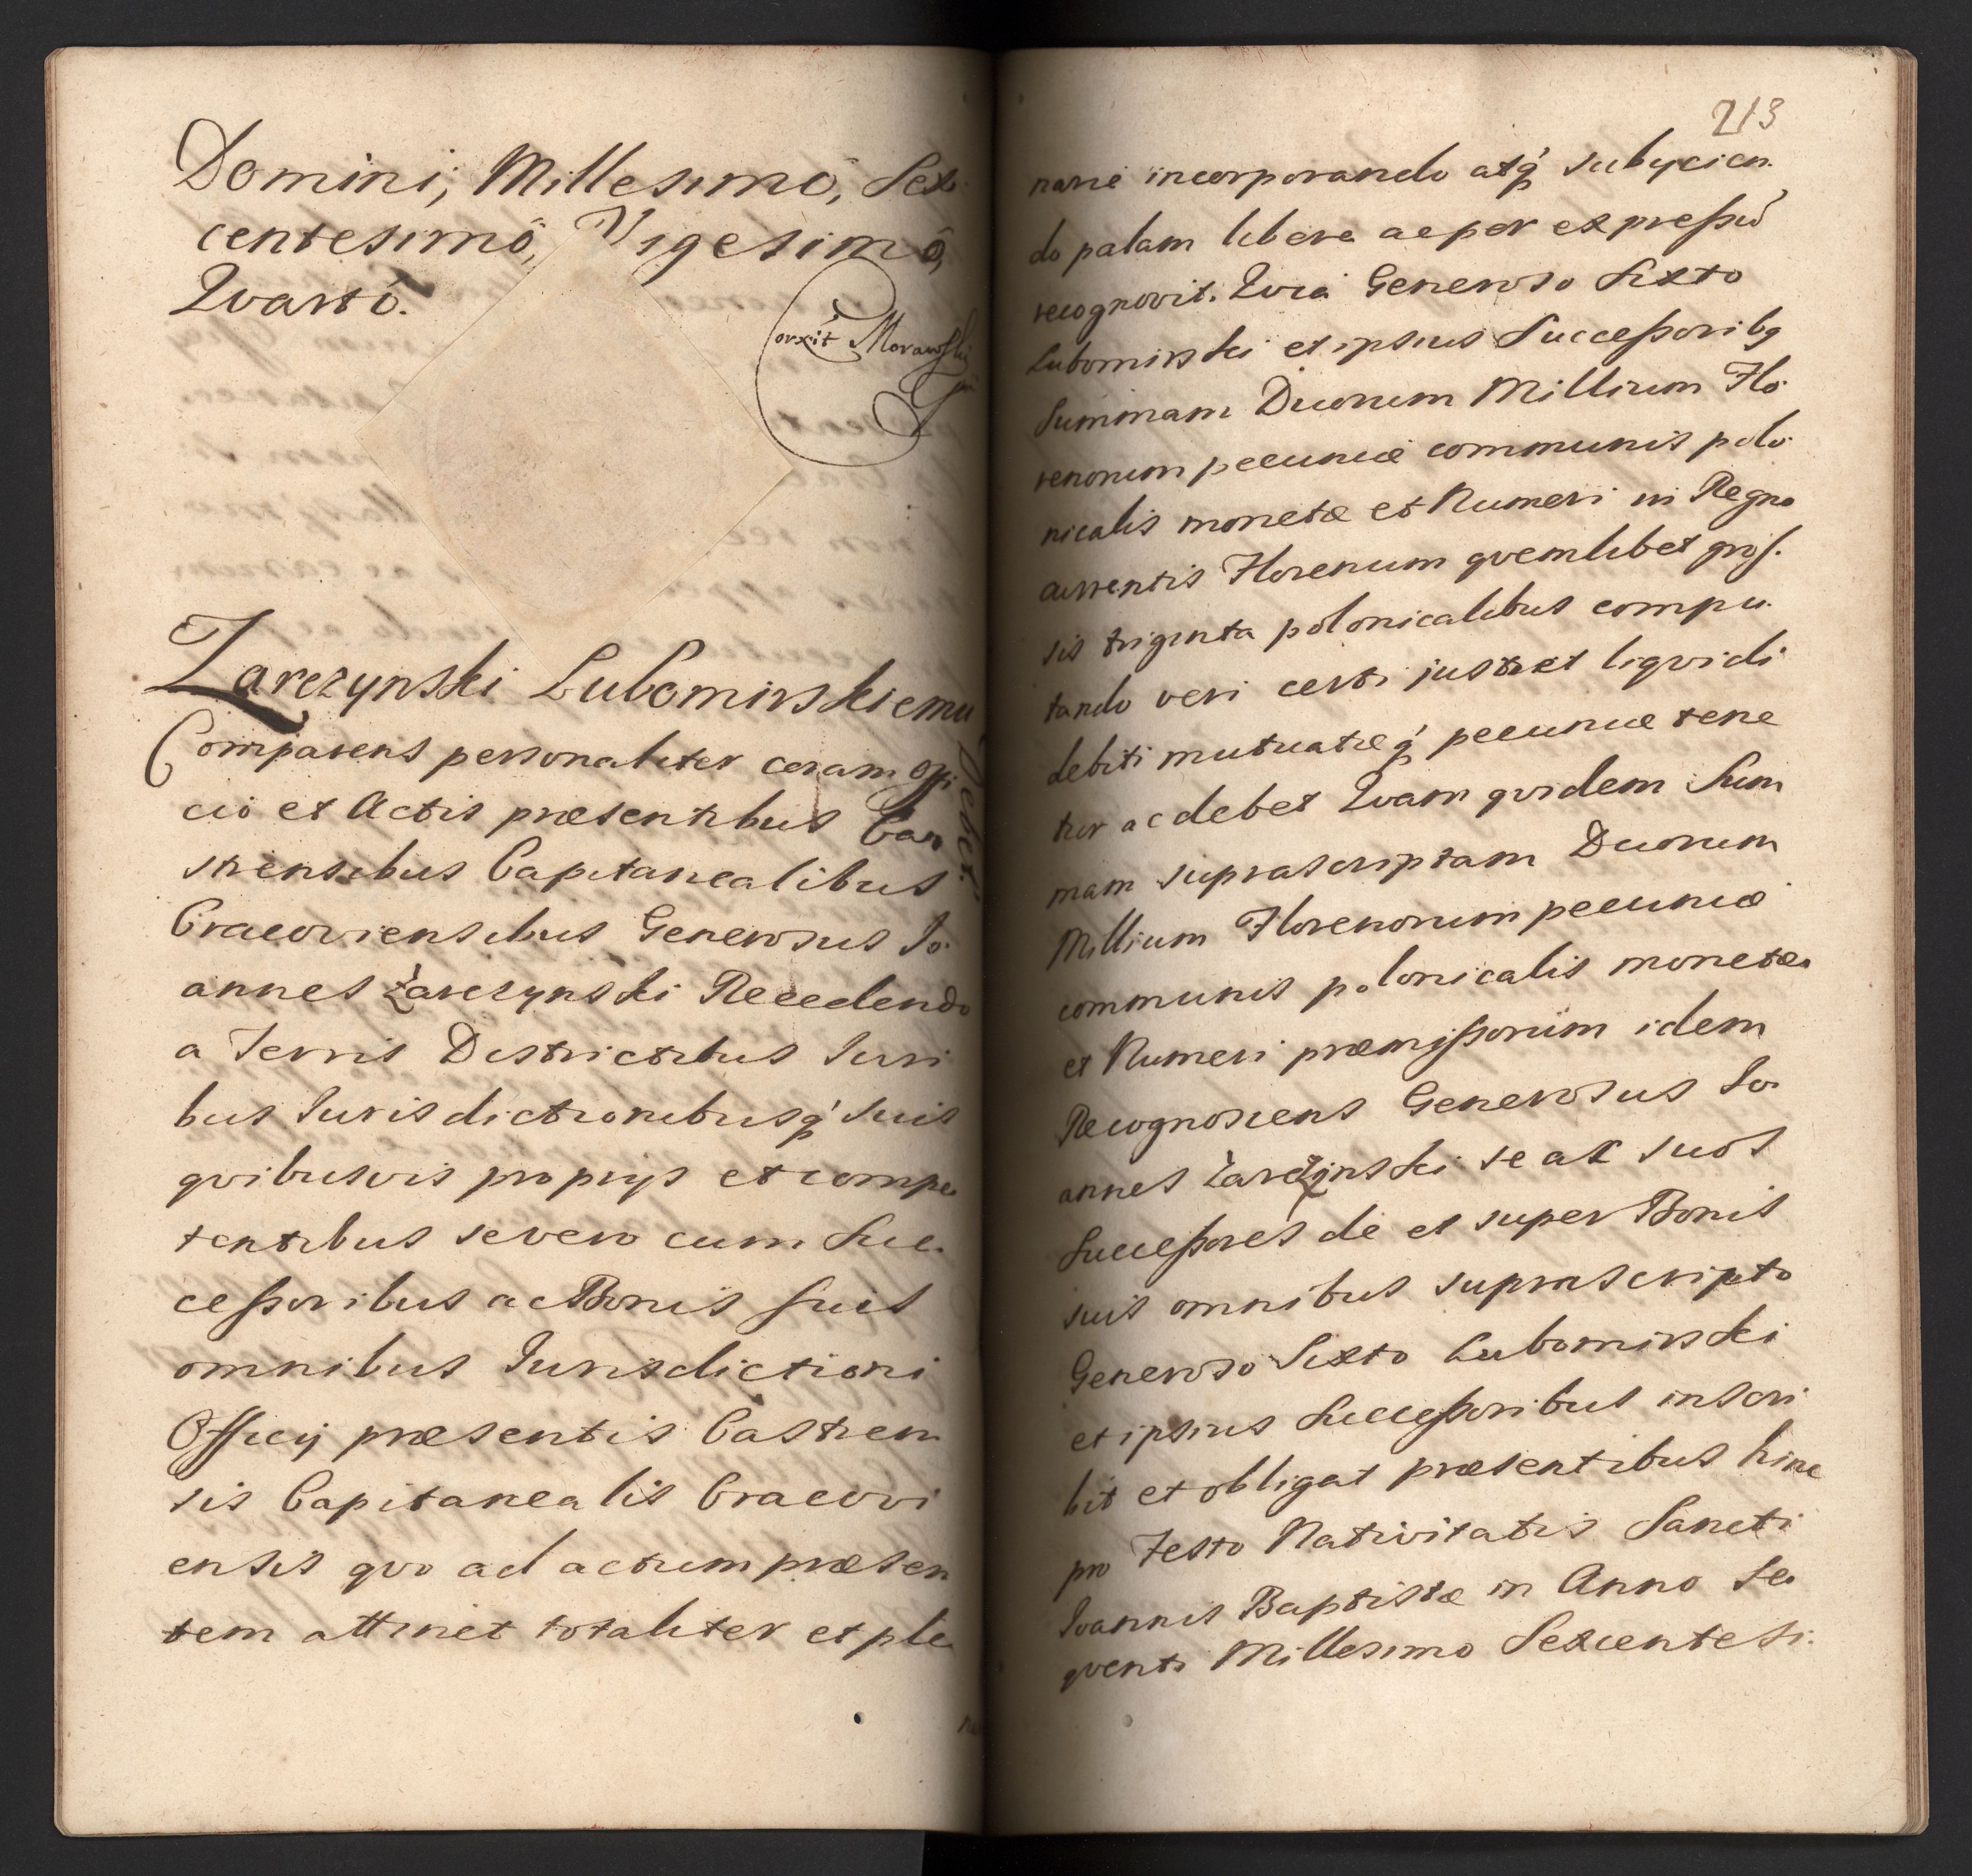 Domini, Millesimo, Sex
centesimô, Vigesimô,
Qvartô.
Corxit Morawski
Zarczynski Lubomirskiemu
Debet.
Comparens personaliter coram Offi
cio et Actis præsentibus Cas
strensibus Capitanealibus
Cracoviensibus Generosus Jo
annes Żarczynski Recedendo
a Terris Districtibus Juri
bus Jurisdictionibusq́ suis
qvibusvis proprijs et compe
tentibus se vero cum Suc
ceßoribus ac Bonis suis
omnibus Jurisdictioni
Officij præsentis Castren
sis Capitanealis Cracovi
ensis qvo ad actum præsen
tem attinet totaliter et ple
213
narie incorporando atq́ subijcien
do palam libere ac per expreßũ
recognovit. Qvia Generoso Sixto
Lubomirski et ipsius Succeßoribq
Summam Duorum Millium Flo
renorum pecuniæ communis polo
nicalis monetæ et Numeri in Regno
currentis Florenum qvemlibet gros.
sis triginta polonicalibus compu
tando veri certi justi et liqvidi
debiti mutuatæq́ pecuniæ tene
tur ac debet Qvam qvidem Sum
mam suprascriptam Duorum
Millium Florenorum pecuniæ
communis polonicalis monetæ
et Numeri præmißorum idem
Recognoscens Generosus Jo
annes Żarczynski se ac suos
Succeßores de et super Bonis
suis omnibus suprascripto
Generoso Sixto Lubomirski
et ipsius Succeßoribus inscri
bit et obligat præsentibus hinc
pro Festo Nativitatis Sancti
Joannis Baptistæ in Anno se
qventi Millesimo Sexcentesi